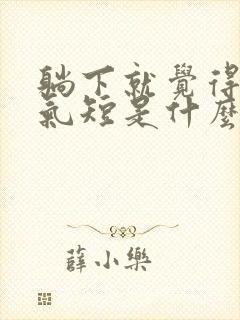 躺下就覺得
氣短是什麼
薛小樂